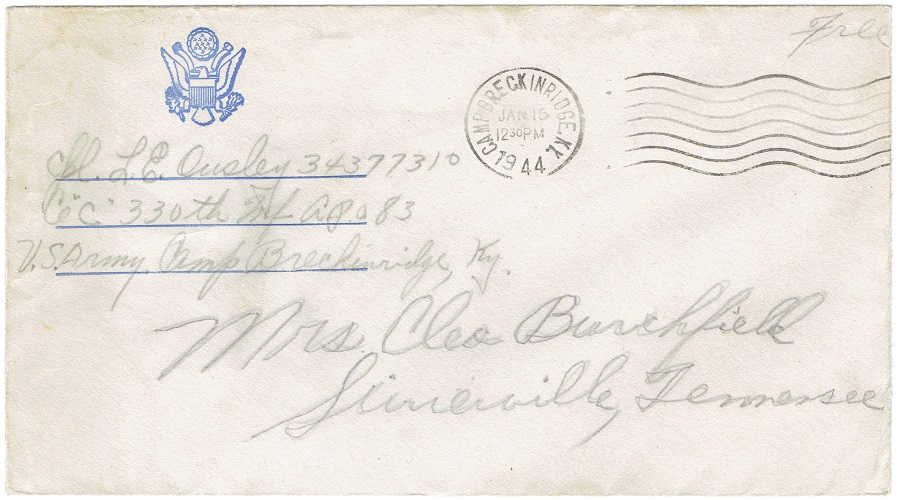 Free
CAMP BRECKINRIDGE, KY.
JAN 15
12 30 PM
1944
Cpl. L.E. Ousley 34377310
Co "C" 330th Inf APO 83
U.S. Army. Camp Breckinridge, Ky.
Mrs. Cleo Burchfield
Sevierville, Tennessee